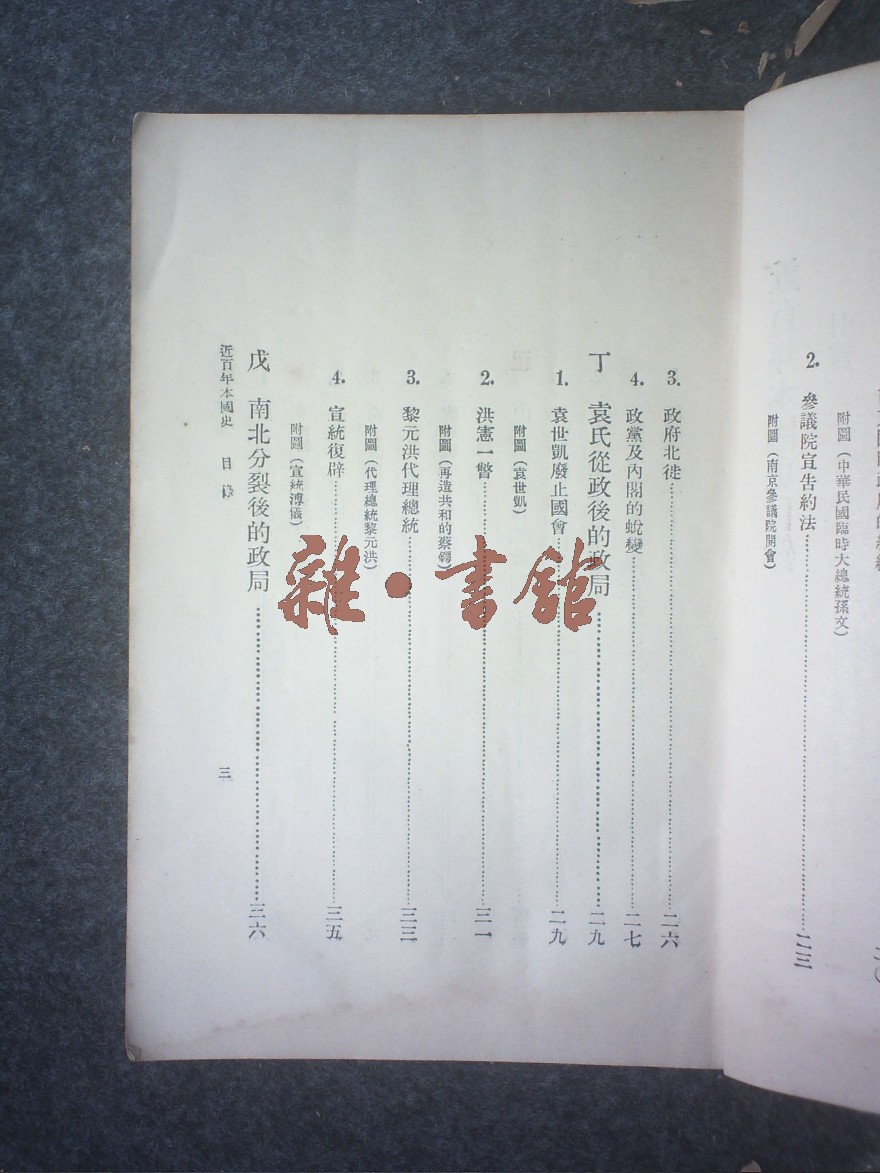 附圖（中華民國臨時大總統孫文）
2. 參議院宣告約法……二三
附圖（南京參議院開會）
3. 政府北徙……二六
4. 政黨及內閣的蛻變……二七
丁 袁氏從政後的政局……二九
1. 袁世凱廢止國會……二九
附圖（袁世凱）
2. 洪憲一瞥……三一
附圖（再造共和的蔡鍔）
3. 黎元洪代理總統……三三
附圖（代理總統黎元洪）
4. 宣統復辟……三五
附圖（宣統溥儀）
戊 南北分裂後的政局……三六
近百年本國史 目錄 三
雜·書館